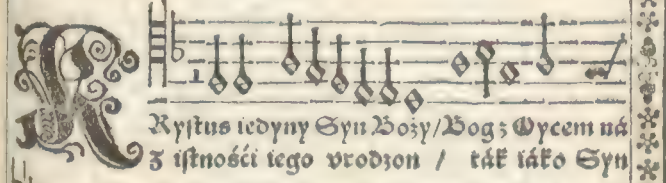 KRyſtus iedyny Syn Boży/Bog z Oycem ná
z iſtnośći iego vrodzon / ták iáko Syn